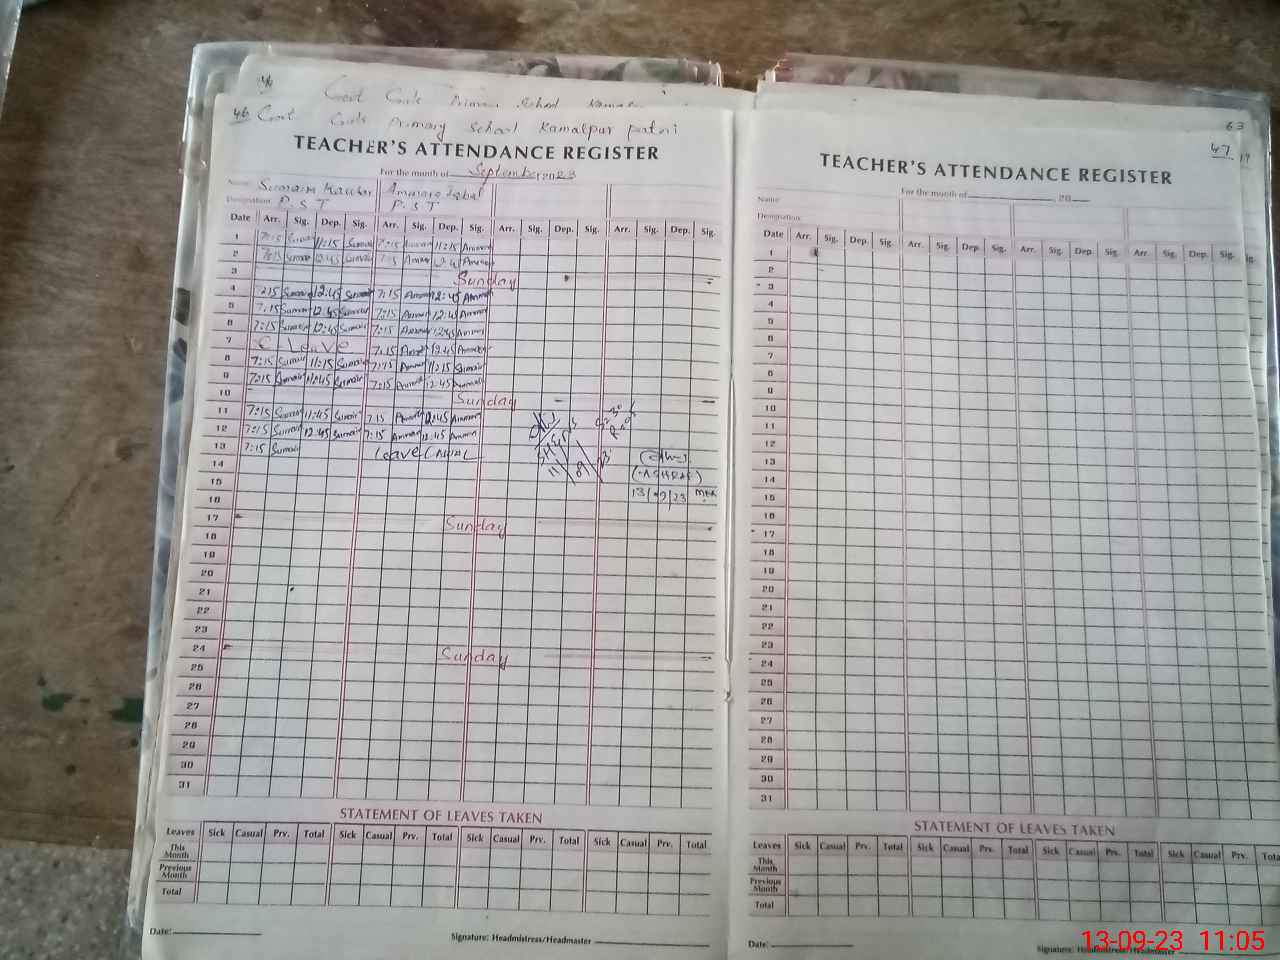 46 Govt Girls Primary School Kamalpur
TEACHER'S ATTENDANCE REGISTER
For the month of September 2023
Name: Sumaira Kausar Ammara Iqbal
Designation: P.S.T P.S.T
Date Arr. Sig. Dep. Sig. Arr. Sig. Dep. Sig. Arr. Sig. Dep. Sig. Arr. Sig. Dep. Sig.
1 7:15 11:15 Sumair 7:15 11:15 Ammar
2 7:15 12:45 Sumair 7:15 Ammar 12:45 Ammar
3 Sunday
4 7:15 Sumair 12:45 Sumair 7:15 Ammar 12:45 Ammar
5 7:15 Sumair 12:45 Sumair 7:15 Ammar 12:45 Ammar
6 7:15 Sumair 12:45 Sumair 7:15 Ammar 12:45 Ammar
7 C Leave 7:15 Ammar 12:45 Ammar
8 7:15 Sumair 11:15 Sumair 7:15 Ammar 11:15 Sumair
9 7:15 Sumair 12:45 Sumair 7:15 Ammar 12:45 Ammar
10 Sunday
11 7:15 Sumair 12:45 Sumair 7:15 Ammar 12:45 Ammar
12 7:15 Sumair 12:45 Sumair 7:15 Ammar 12:45 Ammar
13 7:15 Sumair Leave Casual
14
15
16
17 Sunday
18
19
20
21
22
23
24 Sunday
25
26
27
28
29
30
31
(ASHRAF)
13/09/23
STATEMENT OF LEAVES TAKEN
Leaves Sick Casual Prv. Total Sick Casual Prv. Total Sick Casual Prv. Total Sick Casual Prv. Total
This Month
Previous Month
Total
Date:
Signature: Headmistress/Headmaster
63
47
TEACHER'S ATTENDANCE REGISTER
For the month of 20
Name:
Designation:
Date Arr. Sig. Dep. Sig. Arr. Sig. Dep. Sig. Arr. Sig. Dep. Sig. Arr. Sig. Dep. Sig.
1
2
3
4
5
6
7
8
9
10
11
12
13
14
15
16
17
18
19
20
21
22
23
24
25
26
27
28
29
30
31
STATEMENT OF LEAVES TAKEN
Leaves Sick Casual Prv. Total Sick Casual Prv. Total Sick Casual Prv. Total Sick Casual Prv. Total
This Month
Previous Month
Total
Date:
Signature: Headmistress/Headmaster
13-09-23 11:05